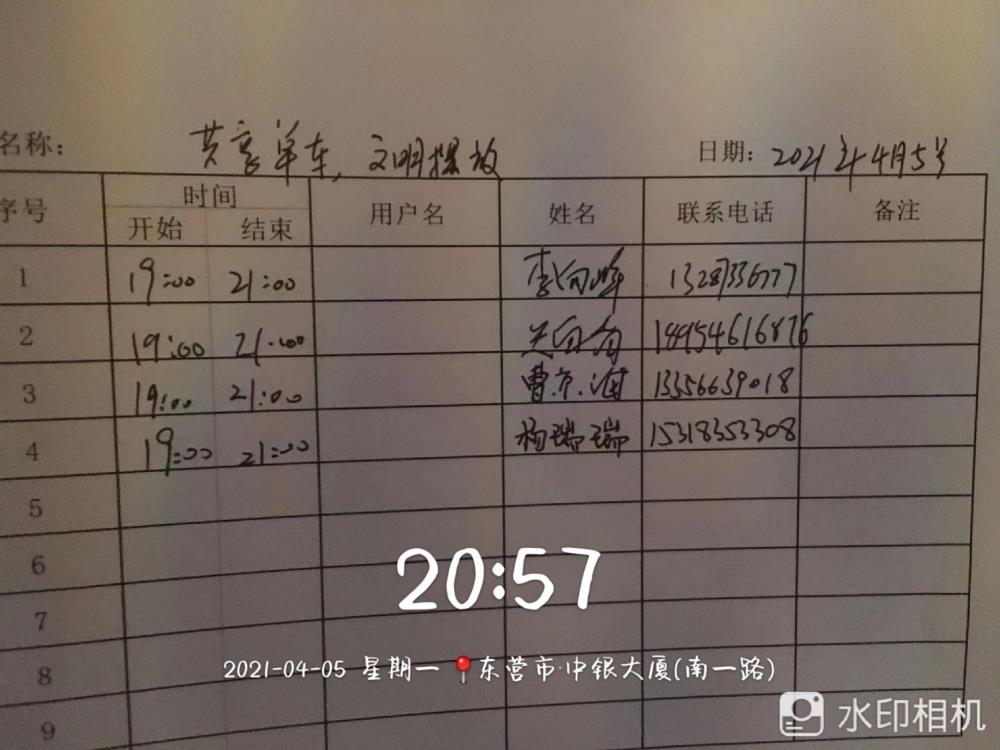 名称： 共享单车，文明摆放 日期：2021年4月5号
序号 时间 用户名 姓名 联系电话 备注
开始 结束
1 19:00 21:00 李向峰
2 19:00 21:00 18954616876
3 19:00 21:00 13356639018
4 19:00 21:00 杨瑞瑞 15318353308
5
6
7
8
9
20:57
2021-04-05 星期一 东营市·中银大厦(南一路)
水印相机